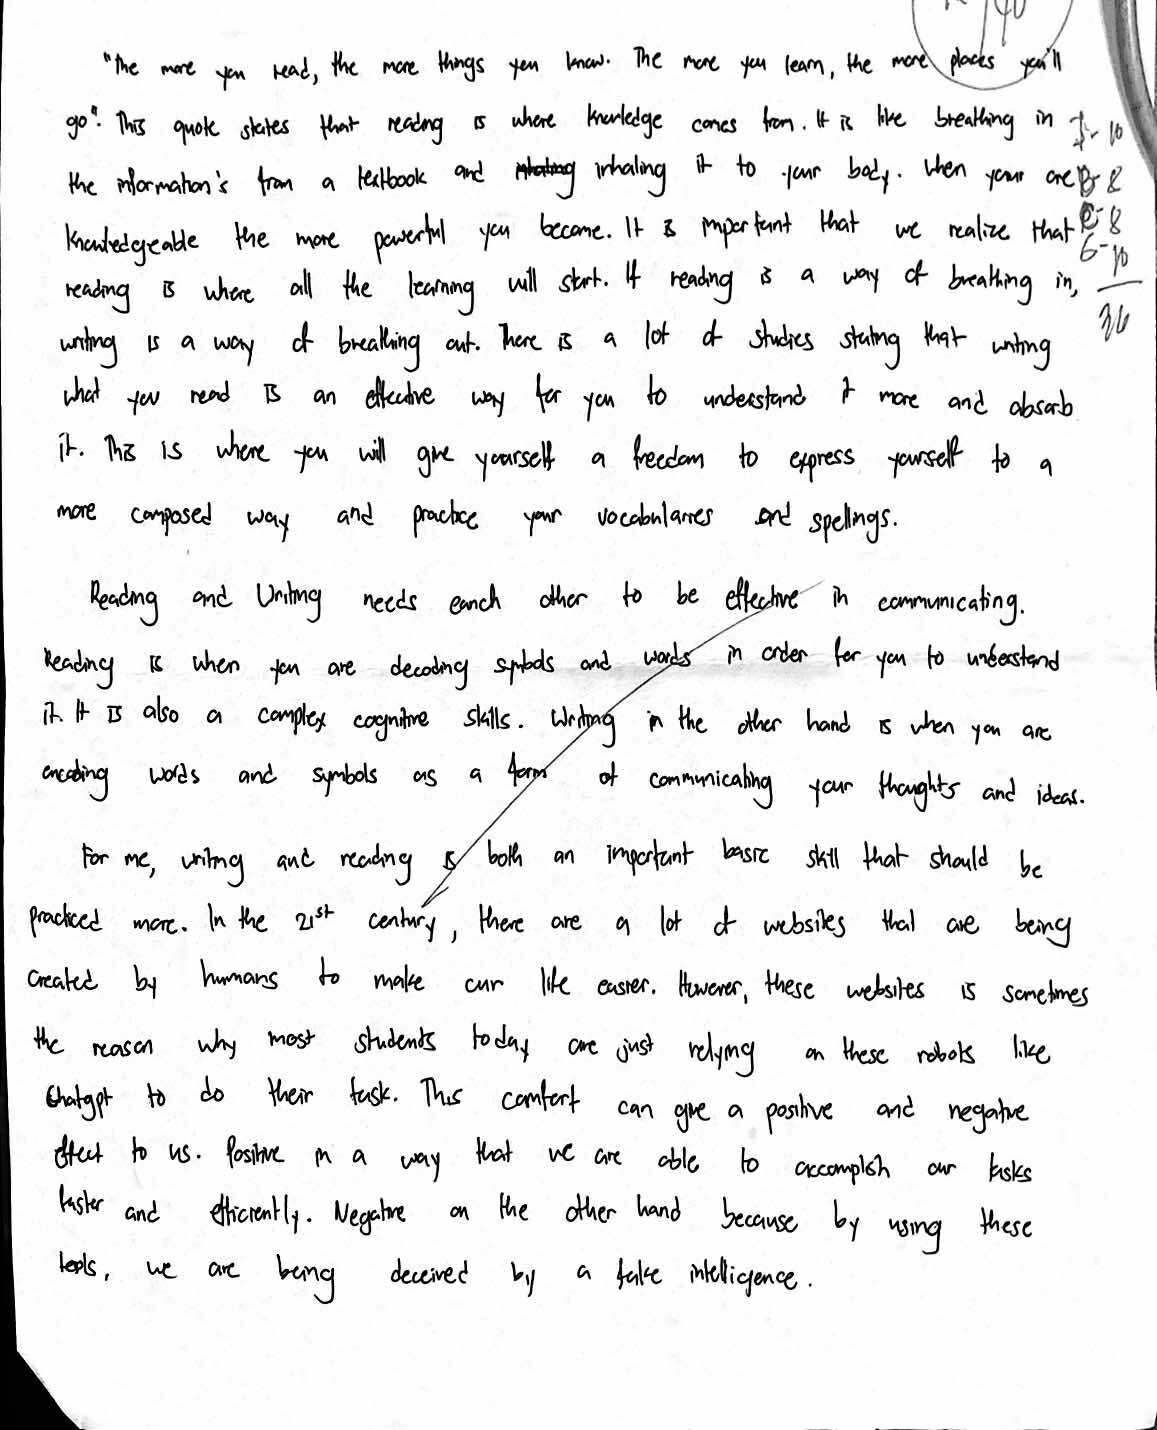 /40
"The more you read, the more things you know. The more you learn, the more places you'll
go". This quote states that reading is where knowledge comes from. It is like breathing in
the information's from a textbook and inhaling it to your body. When your are
knowledgeable the more powerful you become. It is important that we realize that
reading is where all the learning will start. If reading is a way of breathing in,
writing is a way of breathing out. There is a lot of studies stating that writing
what you read is an effective way for you to understand it more and absorb
it. This is where you will give yourself a freedom to express yourself to a
more composed way and practice your vocabularies and spellings.
10
B- 8
8
6- 10
36
Reading and Writing needs eanch other to be effective in communicating.
Reading is when you are decoding symbols and words in order for you to understand
it. It is also a complex cognitive skills. Writing in the other hand is when you are
encoding words and symbols as a form of communicating your thoughts and ideas.
For me, writing and reading is both an important basic skill that should be
practiced more. In the 21st century, there are a lot of websites that are being
created by humans to make our life easier. However, these websites is sometimes
the reason why most students today are just relying on these robots like
Chatgpt to do their task. This comfort can give a positive and negative
effect to us. Positive in a way that we are able to accomplish our tasks
faster and efficiently. Negative on the other hand because by using these
tools, we are being deceived by a fake intelligence.